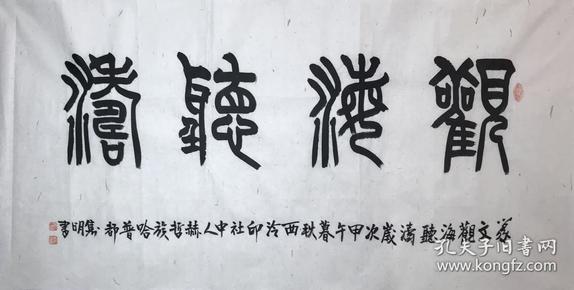 觀海聽濤
篆文觀海聽濤歲次甲午暮秋西泠印社中人赫哲族哈普都雋明書
孔夫子旧书网
www.kongfz.com